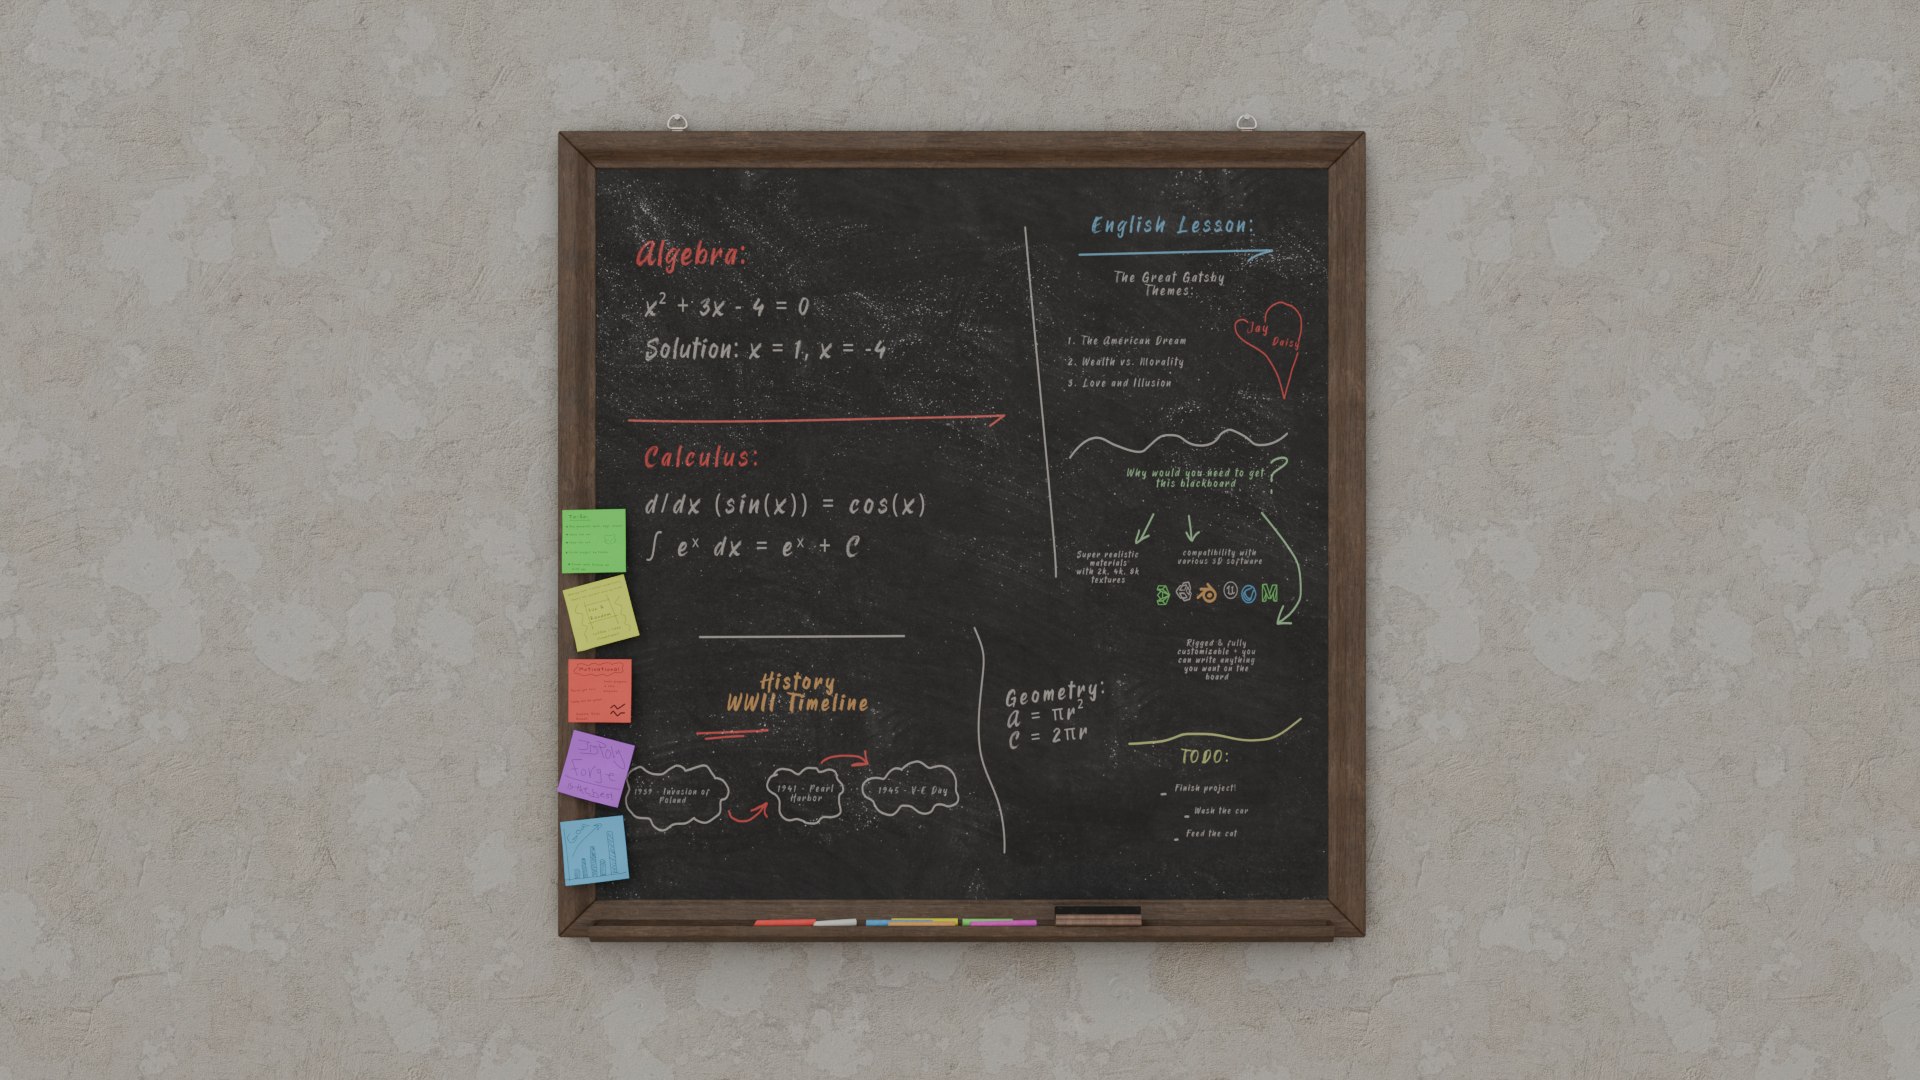 Algebra:
x² + 3x - 4 = 0
Solution: x = 1, x = -4
Calculus:
d/dx (sin(x)) = cos(x)
∫ eˣ dx = eˣ + C
History
WWII Timeline
1939 - Invasion of
Poland
1941 - Pearl
Harbor
1945 - V-E Day
Geometry:
A = πr²
C = 2πr
English Lesson:
The Great Gatsby
Themes:
1. The American Dream
2. Wealth vs. Morality
3. Love and Illusion
Jay
Daisy
Why would you need to get
this blackboard
?
Super realistic
materials
with 2k, 4k, 8k
textures
compatibility with
various 3D software
Rigged & fully
customizable - you
can write anything
you want on the
board
TODO:
- Finish project!
- Wash the car
- Feed the cat
Fun &
Random
Motivational
3DPoly
Forge
is the best